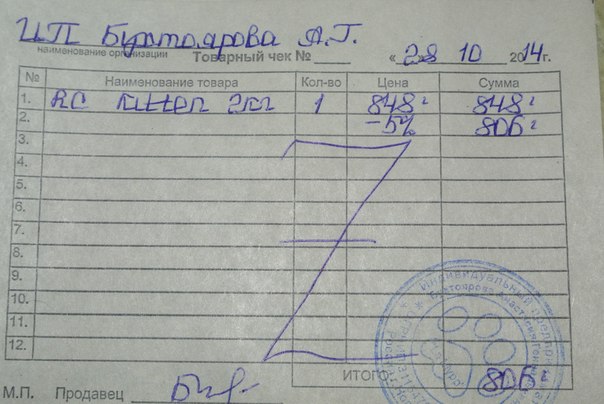 ИП Бухтоярова А.Г.
наименование организации Товарный чек № « 28 10 2014г.
№ Наименование товара Кол-во Цена Сумма
1. RC Kitten 2кг 1 848 848
2. -5% 806
3.
4.
5.
6.
7.
8.
9.
10.
11.
12.
ИТОГО 806
М.П. Продавец
Индивидуальный
Бухтоярова Анастасия